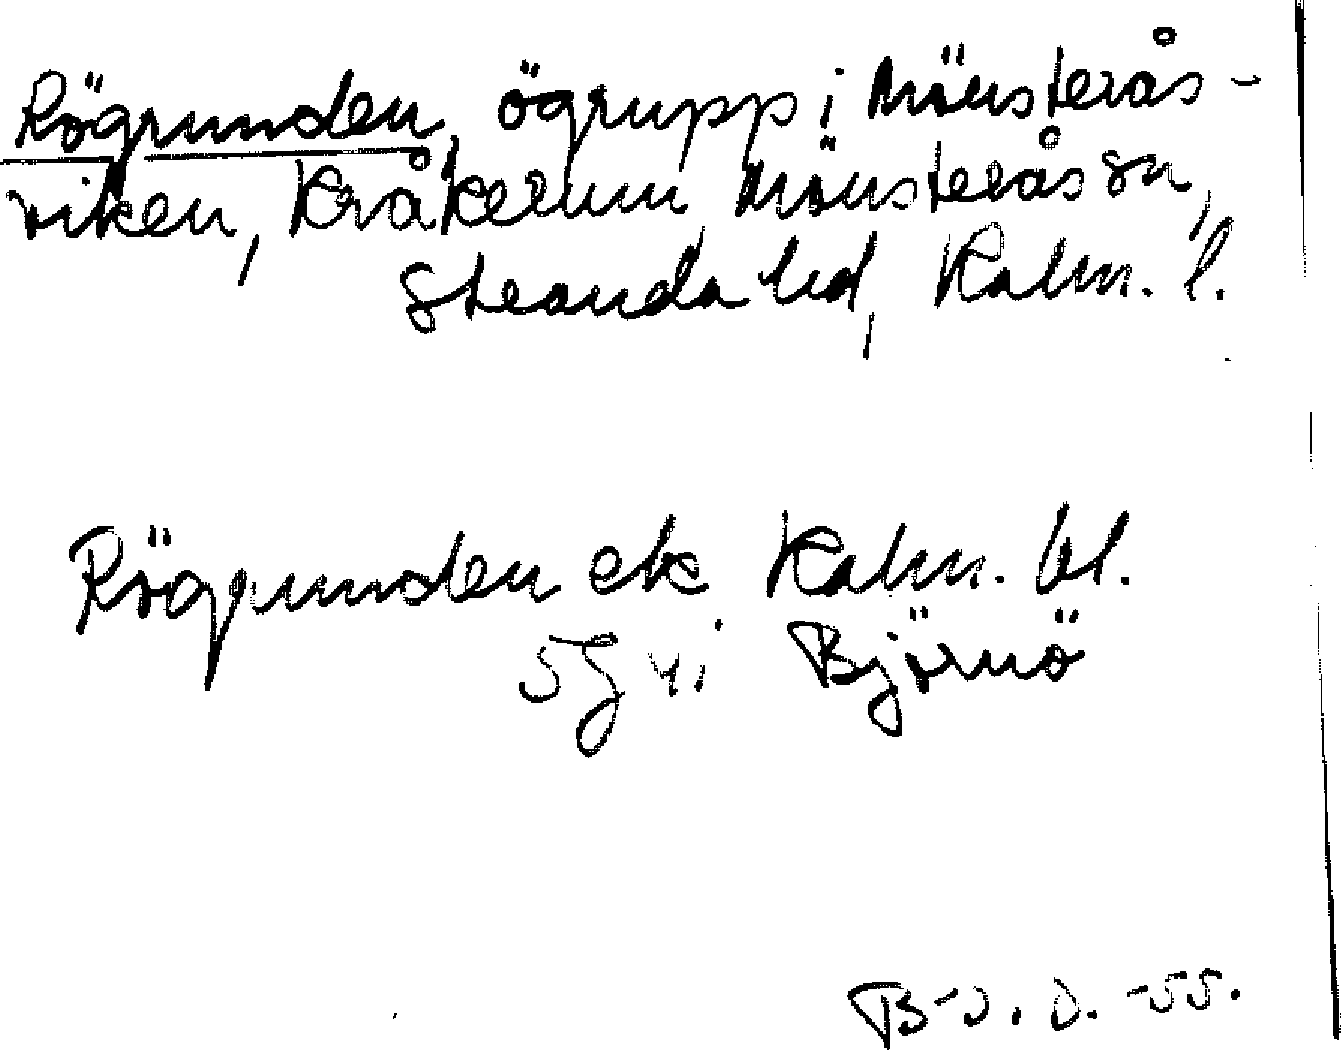 Rögrunden, ögrupp i Mönsterås-
viken, Kråkerum Mönsterås sn,
Stranda hd, Kalm. l.
Rögrunden ek Kalm. bl.
5g Björnö
B-O. O. -55.